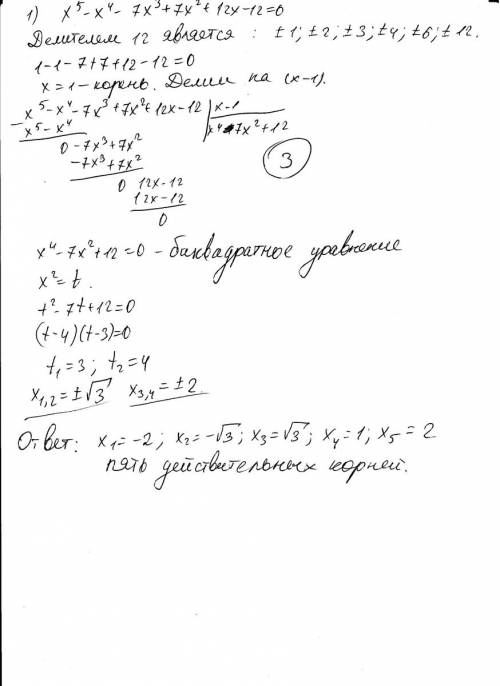 1) x⁵ - x⁴ - 7x³ + 7x² + 12x - 12 = 0
Делителем 12 является : ± 1; ± 2; ± 3; ± 4; ± 6; ± 12.
1 - 1 - 7 + 7 + 12 - 12 = 0
x = 1 - корень. Делим на (x - 1).
x⁵ - x⁴ - 7x³ + 7x² + 12x - 12 | x - 1
x⁵ - x⁴ x⁴ - 7x² + 12
0 - 7x³ + 7x²
- 7x³ + 7x² 3
0 12x - 12
12x - 12
0
x⁴ - 7x² + 12 = 0 - биквадратное уравнение
x² = t.
t² - 7t + 12 = 0
(t - 4)(t - 3) = 0
t₁ = 3 ; t₂ = 4
x₁,₂ = ± √3 x₃,₄ = ± 2
Ответ: x₁ = -2 ; x₂ = -√3 ; x₃ = √3 ; x₄ = 1 ; x₅ = 2
пять действительных корней.